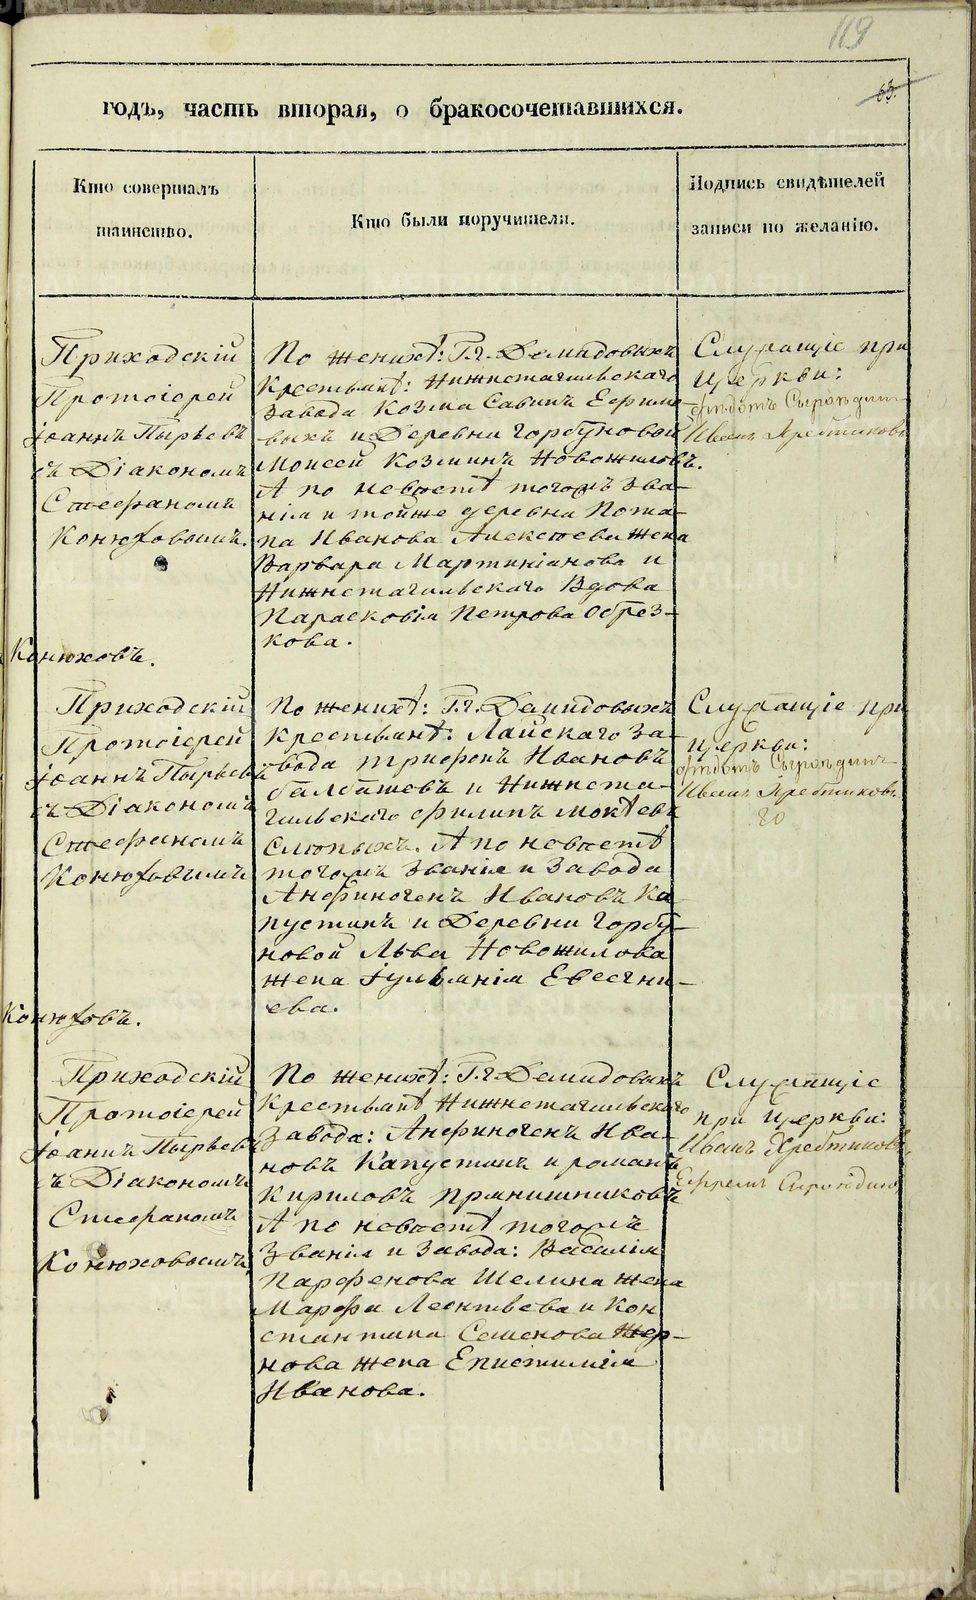 119
63.
годъ, часть вторая, о бракосочетавшихся.
Кто совершалъ
таинство.
Кто были поручители.
Подпись свидѣтелей
записи по желанію.
Приходскій
Протоіерей
Іоаннъ Пырьевъ
съ Діакономъ
Стефаномъ
Конюховымъ.
Конюховъ.
По женихѣ: Г.г. Демидовыхъ
Крестьянѣ: Нижнетагильскаго
завода Козма Савинъ Ефимо-
выхъ и Деревни Горбуновой
Моисей Козминъ Новожиловъ.
А по невестѣ тогожъ зва-
нія и тойже деревни Пота-
па Иванова Алексеева жена
Варвара Мартиніанова и
Нижнетагильскаго Вдова
Парасковія Петрова Обрез-
кова.
Служащіе при
Церкви:
Федотъ Сыропдин
Иванъ Хребтиковъ
Приходскій
Протоіерей
Іоаннъ Пырьевъ
съ Діакономъ
Стефаномъ
Конюховымъ
Конюховъ.
По женихѣ: Г.г. Демидовыхъ
Крестьянѣ: Лайскаго за-
вода Трифонъ Ивановъ
Балбашевъ и Нижнета-
гильскаго Филипъ Мокѣевъ
Слюпыхъ. А по невестѣ
тогожъ званія и завода
Анфиногенъ Ивановъ Ка-
пустинъ и Деревни Горбу-
новой Льва Новожилова
жена Іульянія Евсегни-
ева.
Служащіе при
Церкви:
Федотъ Сыропдин
Иванъ Хребтиковъ
Приходскій
Протоіерей
Іоаннъ Пырьевъ
съ Діакономъ
Стефаномъ
Конюховымъ
По женихѣ: Г.г. Демидовыхъ
Крестьянѣ Нижнетагильскаго
завода: Анфиногенъ Ива-
новъ Капустинъ и Романъ
Кириловъ Прянишниковъ
А по невестѣ тогожъ
Званія и завода: Василія
Парфенова Шелина жена
Марфа Леонтьева и Кон
стантина Семенова Жер-
нова жена Епистимія
Иванова.
Служащіе
при Церкви:
Иванъ Хребтиковъ
METRIKI.GASO-URAL.RU